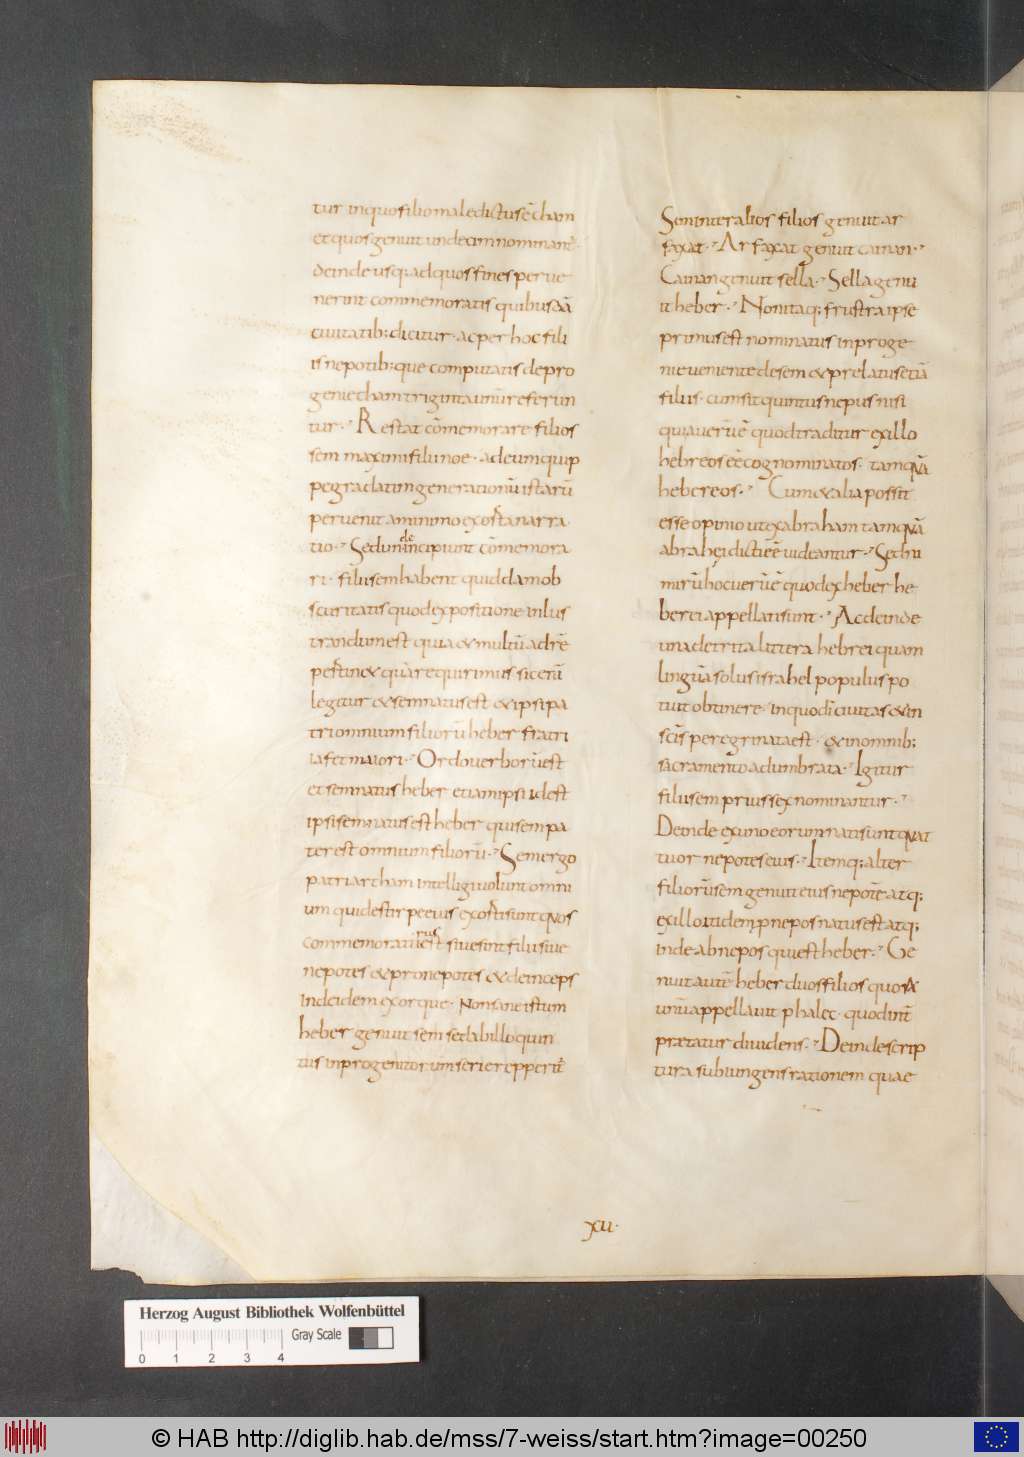 tur inquo filio maledictus ē cham
et quos genuit undecim nominant᷑.
deinde usq; ad quos fines perue
nerint commemoratis quibusdā
ciuitatib; dicitur. ac per hoc fili
is nepotib; que computatis de pro
genie cham triginta unū referun
tur. Restat cōmemorare filios
sem maximi filii noe. adeum quip
pe gradatim generationū istarū
peruenit a minimo exorta narra
tio. Sed unde incipiunt cōmemora
ri. filii sem habent quiddam ob
scuritatis quod expositione inlus
trandum est quia & multū ad rē
pertin& quā requirimus sic enī
legitur & sem natus est & ipsi pa
tri omnium filiorū heber fratri
iafet maiori. Ordo uerborū est
et sem natus heber etiam ipsi id est
ipsi sem natus est heber qui sem pa
ter est omnium filiorū. Sem ergo
patriarcham intelligi uolunt omni
um qui de stirpe eius exorti sunt quos
commemoraturus est siue sint filii siue
nepotes & pronepotes & deinceps
indeidem exorque. Non sane istum
heber genuit sem sed ab illo quin
tus in progenitorum serie repperit᷑
Sem inter alios filios genuit ar
faxat. Arfaxat genuit cainan.
Cainan genuit sella. Sella genu
it heber. Non itaq; frustra ipse
primus est nominatus in proge
nie ueniente de sem & prelatus etiā
filiis. cum sit quintus nepus nisi
quia uerū ē quod traditur ex illo
hebreos eē cognominatos. tamquā
hebereos. Cum & alia possit
esse opinio ut ex abraham tamquā
abrahei dicti eē uideantur. Sed ni
mirū hoc uerū ē quod ex heber he
berei appellati sunt. Ac deinde
una detrita littera hebrei quam
linguā solus israhel populus po
tuit obtinere. in quo dī ciuitas & in
scīs peregrinata est. & in omnib;
sacramento adumbrata. Igitur
filii sem prius sex nominantur.
Deinde ex uno eorum nati sunt quat
tuor nepotes eius. Itemq; alter
filiorū sem genuit eius nepotē atq;
ex illo itidem pnepos natus est atq;
inde abnepos qui est heber. Ge
nuit autē heber duos filios quorū
unū appellauit phalec. quod int᷑
prætatur diuidens. Deinde scrip
tura subiungens rationem quae
xii.
Herzog August Bibliothek Wolfenbüttel
Gray Scale
0 1 2 3 4
© HAB http://diglib.hab.de/mss/7-weiss/start.htm?image=00250